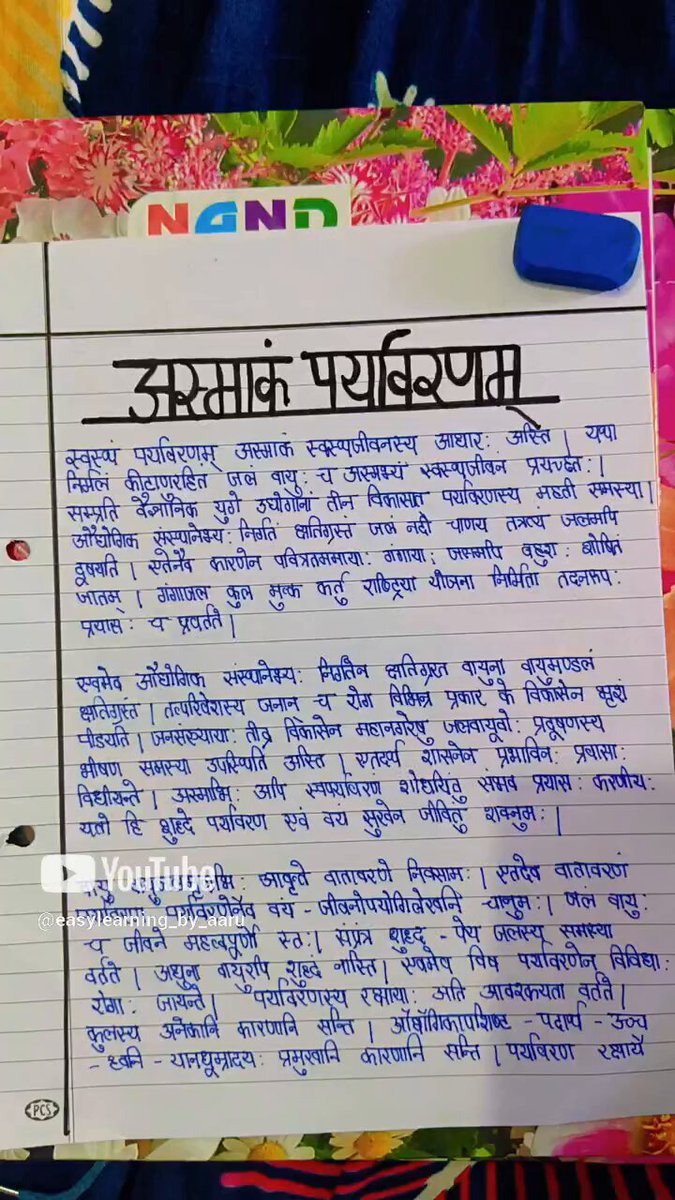 NGND
अस्माकं पर्यावरणम्
स्वस्थं पर्यावरणंम् अस्माकं स्वस्थ्यजीवनस्य आधार: अस्ति | यथा
निर्मलं कीटाणरहितं जलं वायु: च अस्मभ्यं स्वस्थ्यजीवनं प्रयच्छत: |
सम्प्रति वैज्ञानिक युगे उद्योगानां तीन विकासात पर्यावरणस्य महती समस्या |
औद्योगिक संस्थानेभ्य: निर्गतं क्षतिग्रस्त जलं नदी चाणय तत्रत्यं जलमपि
दूषयति | एतेनैव कारणेन पवित्रतममाया: गंगाया: जलमपि बहुश:
जातम् | गंगाजल कुल मुक्क कर्तु राष्ट्रिया योजना निर्मिता तदनरूप:
प्रयास: च प्रवर्तते |
स्वमेव औद्योगिक संस्थानेभ्य: निर्गतेन क्षतिग्रस्त वायुना वायुमण्डलं
क्षतिग्रस्तं | तत्परिवेशस्य जनान च रोग विभिन्न प्रकार के विकासेन भृशं
पीडयति | जनसंख्याया: तीव्र विकासेन महानगरेषु जलवायूवो: प्रदूषणस्य
भीषण समस्या उपस्थिति अस्ति | एतदर्थ शासनेन प्रभाविन: प्रयासा:
विधीयन्ते | अस्माभि: अपि स्वपर्यावरण शोधयितु संभव प्रयास: करणीय:
यतो हि शुद्दे पर्यावरण एवं वय सुखेन जीवितु शक्नुम: |
आवृते वातावरणे निवसाम: | एतदेव वातावरणं
वयं - जीवनोपयोगिलेखनि चानुम: | जलं वायु:
च जीवने महत्वपूर्णो स्त: | संप्रंत्र शुद्द - पेय जलस्य समस्या
वर्तते | अधुना वायुरपि शुद्दं नास्ति | एवमेष विष पर्यावरणेन विविधा:
रोगा: जायन्ते | पर्यावरणस्य रक्षाया: अति आवश्यकता वर्तते |
कुलस्य अनेकानि कारणानि सन्ति | - पदार्थ - उच्च
- ध्वनि - यानधूम्रादय: प्रमुखानि कारणानि सन्ति | पर्यावरण रक्षायै
YouTube
@easylearning_by_aaru
PCS